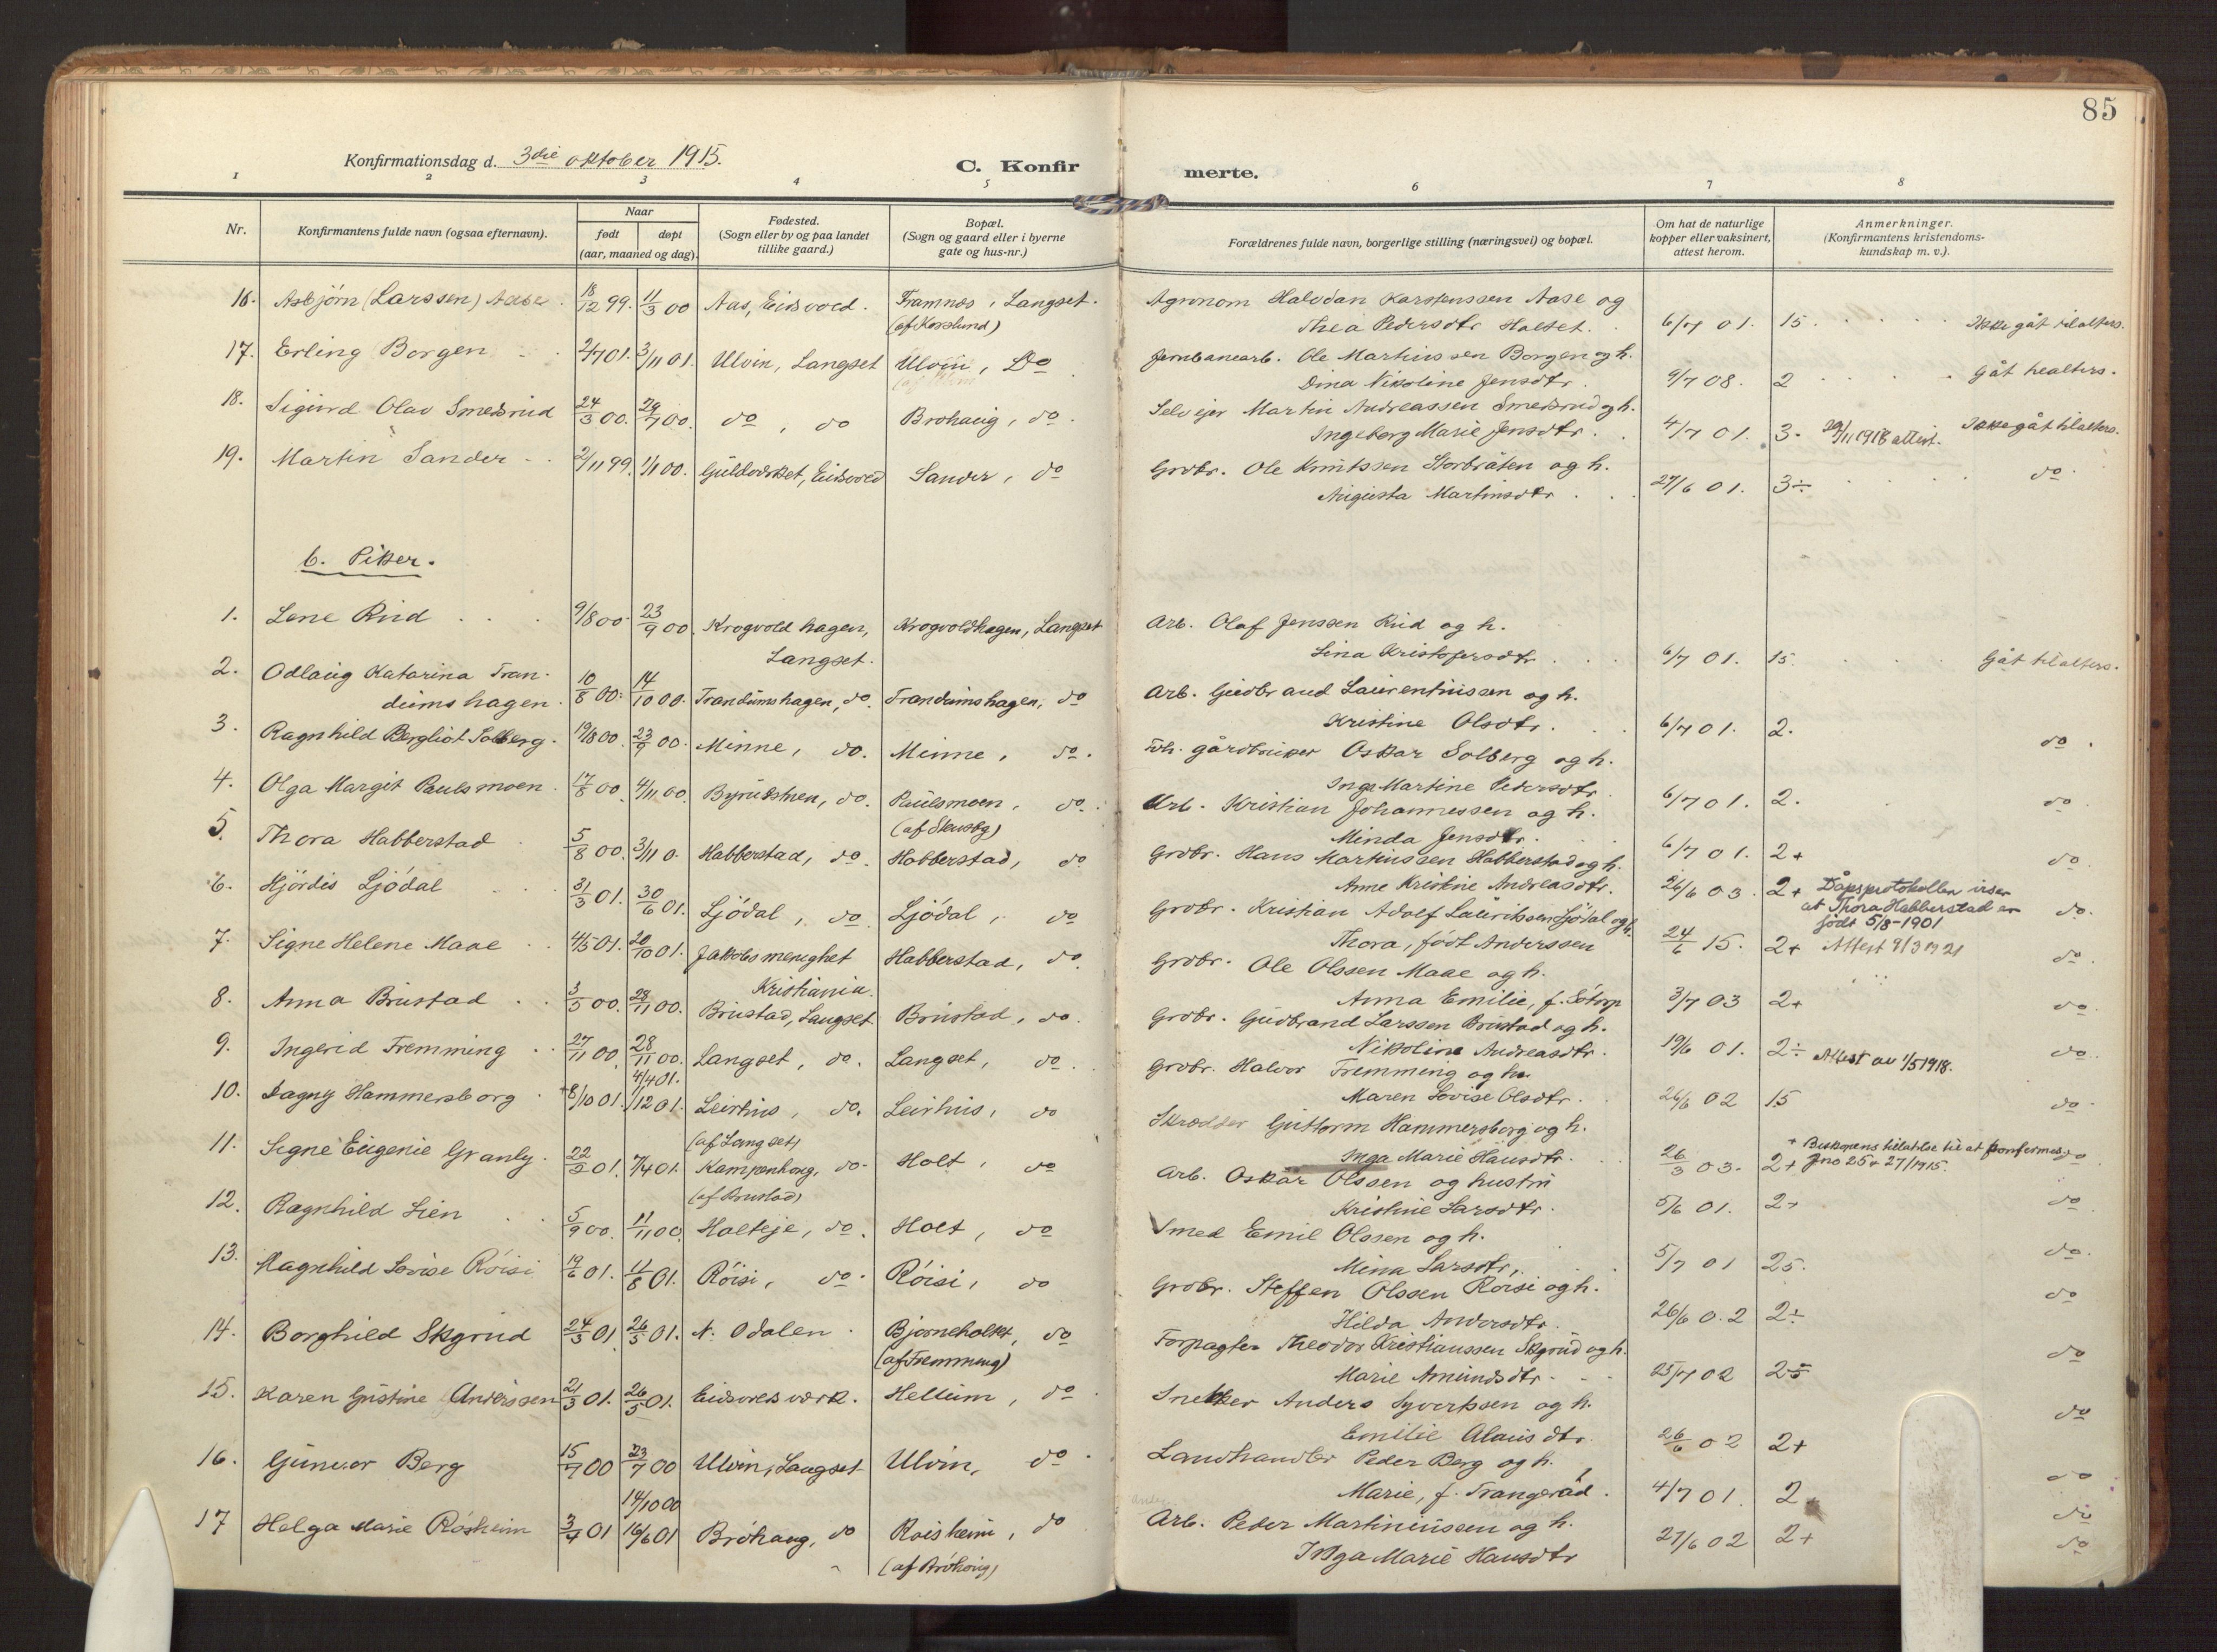 85
Konfirmationsdag d. 3die oktober 1915.
C. Konfirmerte.
1 2 3 4 5 6 7 8
Nr. | Konfirmantens fulde navn (ogsaa efternavn). | Naar født døpt (aar, maaned og dag). | Fødested. (Sogn eller by og paa landet tillike gaard.) | Bopæl. (Sogn og gaard eller i byerne gate og hus-nr.) | Forældrenes fulde navn, borgerlige stilling (næringsvei) og bopæl. | Om hat de naturlige kopper eller vaksinert, attest herom. | Anmerkninger. (Konfirmantens kristendoms-kundskap m. v.).
16. Asbjørn (Larssen) Aase. 18/12 99. 11/3 00 Aas, Eidsvold. Framnes, Langset. Agronom Halvdan Karstenssen Aase og
(af Korslund) Thea Pedersdtr Holtet. 6/7 01. 15. Ikke gåt tilalters.
17. Erling Borgen 2/7 01. 3/11 01. Ulvin, Langset Ulvin, Do Jernbanearb. Ole Martinssen Borgen og h.
Dina Nikoline Jensdtr. 9/7 08. 2 Gåt tilalters.
18. Sigurd Olav Smedsrud 24/3 00. 29/7 00. do, do Brohaug, do. Selveier Martin Andreassen Smedsrud og h.
Ingeborg Marie Jensdtr. 4/7 01. 3. 29/11 1918 attest. Ikke gåt tilalters.
19. Martin Sander 2/11 99. 1/1 00. Guldverket, Eidsvold Sander, do Grdbr. Ole Knutssen Storbråten og h.
Augusta Martinsdtr. 27/6 01. 3÷ do.
b. Piker.
1. Lene Rud 9/8 00 23/9 00 Krogvoldhagen, Krogvoldhagen, Langset Arb. Olaf Jenssen Rud og h.
Langset. Lina Kristofersdtr. 6/7 01. 15. Gåt tilalters.
2. Odlaug Katarina Tran-
dumshagen. 10/8 00. 14/10 00. Trandumshagen, do. Trandumshagen, do Arb. Gudbrand Laurentiussen og h.
Kristine Olsdtr. 6/7 01. 2. do.
3. Ragnhild Bergliot Solberg. 19/8 00. 23/9 00. Minne, do. Minne, do. Fh. gårdbruker Oskar Solberg og h.
Inga Martine Pedersdtr. 6/7 01. 2. do.
4. Olga Margit Paulsmoen. 17/8 00. 4/11 00. do. Paulsmoen, do. Arb. Kristian Johannessen og h.
Minda Jensdtr. 6/7 01. 2+ do.
5. Thora Habberstad 5/8 00. 3/11 0. Habberstad, do. Habberstad, do Grdbr. Hans Martinssen Habberstad og h.
Anne Kristine Andreasdtr. 26/6 03. 2+ Dåpsprotokollen viser
at Thora Habberstad er
født 5/8-1901 do.
6. Hjördis Ljödal 31/3 01. 30/6 01. Ljödal, do. Ljödal, do Grdbr. Kristian Adolf Laurikssen Ljödal og h.
Thora, født Anderssen 24/6 15. 2+ Attest 9/3 1921 do.
7. Signe Helene Maae 4/5 01. 20/10 01. Jakobs menighet Habberstad, do. Grdbr. Ole Olssen Maae og h.
Kristiania. Anna Emilie, f. Sötorp 3/7 03 2+ do.
8. Anna Brustad 3/5 00. 28/11 00. Brustad, Langset Brustad, do. Grdbr. Gudbrand Larssen Brustad og h.
Nikoline Andreasdtr. 19/6 01. 2÷ Attest av 1/5 1918. do.
9. Ingerid Fremming 27/11 00 28/11 00. Langset, do. Langset, do. Grdbr. Halvor Fremming og h.
Maren Lovise Olsdtr. 26/6 02 15 do.
10. Dagny Hammersborg +8/10 01. 4/4 01. 1/12 01. Leirhus, do. Leirhus, do Skrædder Guttorm Hammersborg og h.
Inga Marie Hansdtr. 26/3 03. 2+ + Biskopens tillatelse til at konfirmes
Jno 25 + 27/1915. do.
11. Signe Eugenie Granly. 22/2 01. 7/4 01. (af Langset)
Kampenhaug, do. Holt, do Arb. Oskar Olssen og hustru
(af Brustad) Kristine Larsdtr. 5/6 01. 2+ do
12. Ragnhild Lien 5/9 00. 11/11 00. Holteje, do. Holt, do Smed Emil Olssen og h.
Mina Larsdtr. 5/7 01 25. do.
13. Magnhild Lovise Röisi 19/6 01. 11/8 01. Röisi, do. Röisi, do Grdbr. Steffen Olssen Röisi og h.
Hilda Andersdtr. 26/6 0.2 2÷ do
14. Borghild Skgrud 24/3 01. 26/5 01. N. Odalen. Bjørneholtet, do Forpagter Theodor Kristianssen Skgrud og h.
(af Fremming) Marie Amundsdtr. 25/7 02 25 do
15. Karen Gustine (Anderssen 21/3 01. 26/5 01. Eidsvolds værk. Hellum, do. Snekker Anders Syvertssen og h.
Emilie Olausdtr. 26/6 02 2+ do
16. Gunvor Berg 15/7 00 23/7 00 Ulvin, Langset Ulvin, do. Landhandler Peder Berg og h.
Marie, f. Trangerud. 4/7 01. 2 do
17 Helga Marie Rösheim 3/4 01 14/10 00 16/6 01 Bröhaug, do Roisheim, do Arb. Peder Martiniussen og h. do
(af Bröhaug) Inga Marie Hansdtr 27/6 02 2+ do